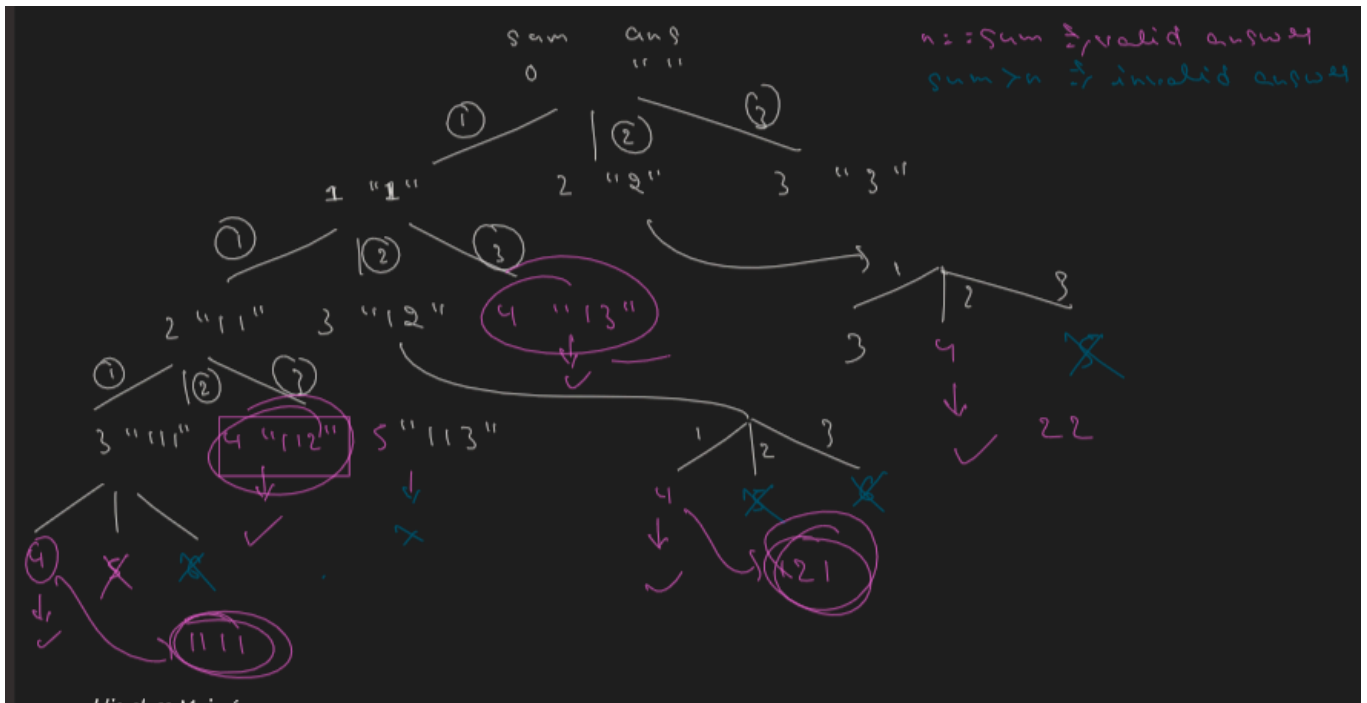 sum ans
0 " "
n==sum valid answer
sum>n invalid answer
1 2 3
1 "1" 2 "2" 3 "3"
1 2 3
2 "11" 3 "12" 4 "13"
1 2 3
3 4 5
22
1 2 3
3 "111" 4 "112" 5 "113"
1 2 3
4 5 6
121
4 5 6
1111